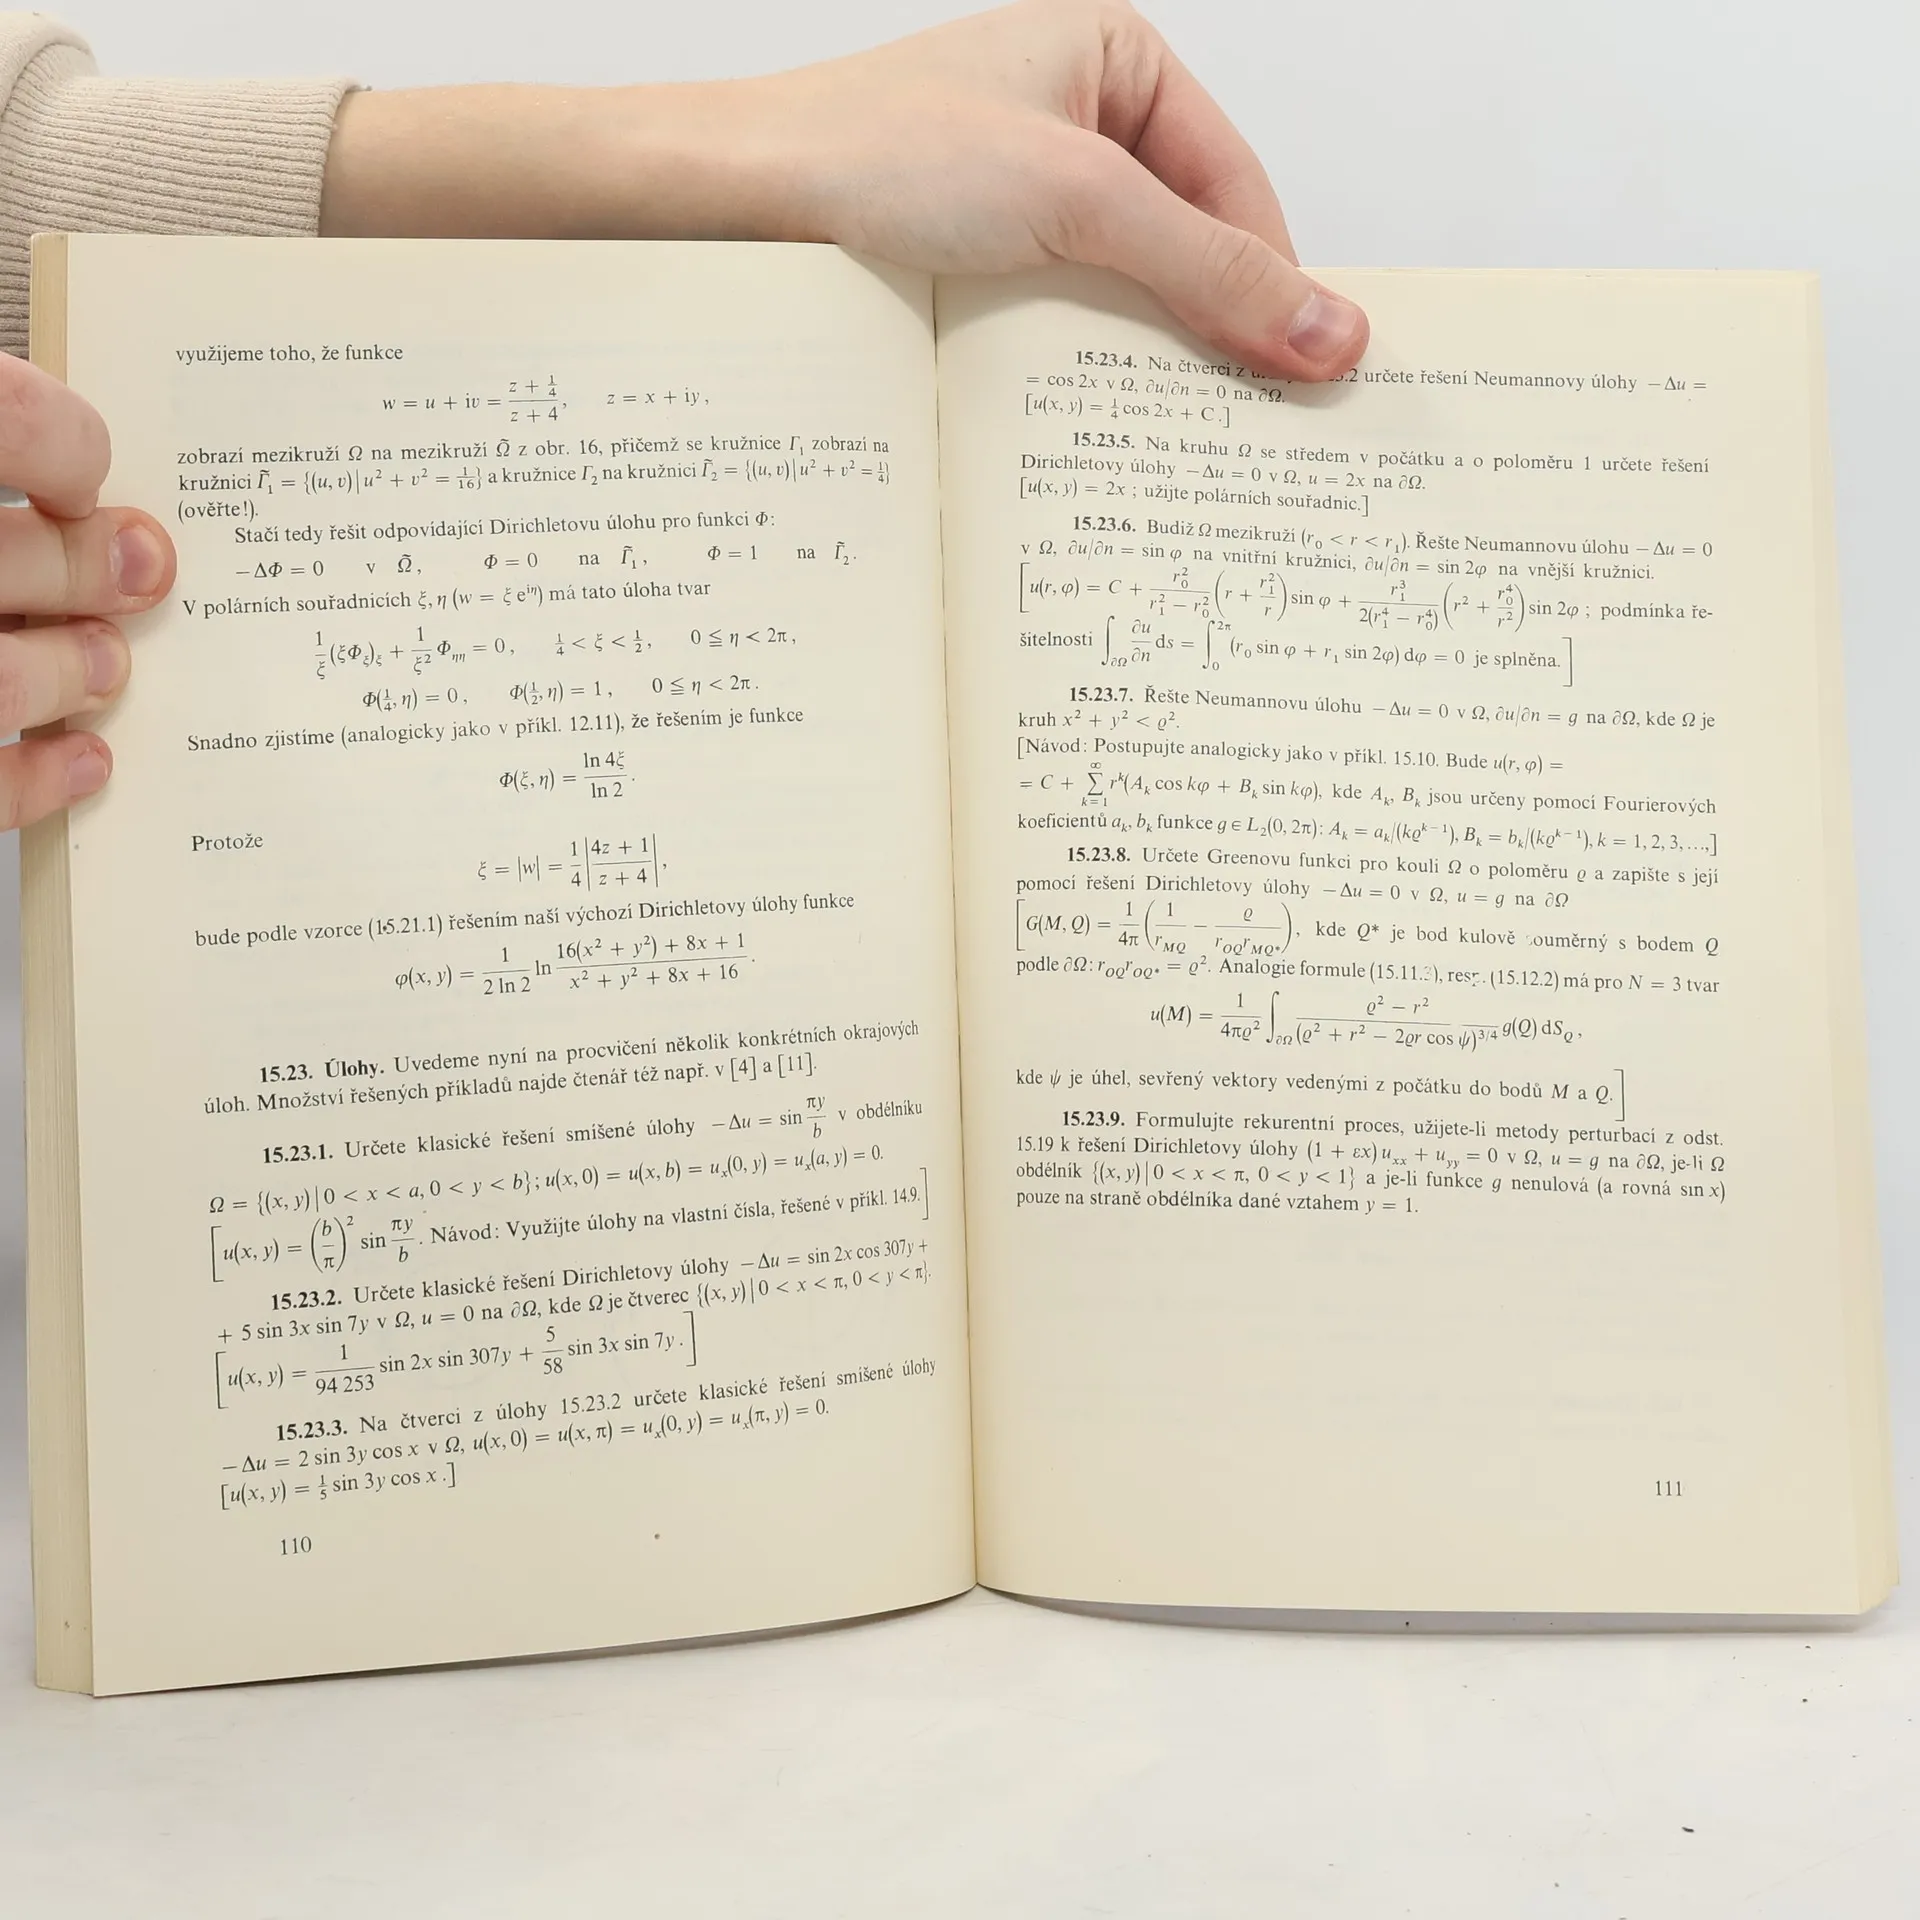 využijeme toho, že funkce
w = u + iv = (z + 1/4)/(z + 4), z = x + iy,
zobrazí mezikruží Ω na mezikruží Ω̃ z obr. 16, přičemž se kružnice Γ₁ zobrazí na
kružnici Γ̃₁ = {(u, v)|u² + v² = 1/16} a kružnice Γ₂ na kružnici Γ̃₂ = {(u, v)|u² + v² = 1/4}
(ověřte!).
Stačí tedy řešit odpovídající Dirichletovu úlohu pro funkci Φ:
−ΔΦ = 0 v Ω̃, Φ = 0 na Γ̃₁, Φ = 1 na Γ̃₂.
V polárních souřadnicích ξ, η (w = ξ e^{iη}) má tato úloha tvar
1/ξ (ξΦ_ξ)_ξ + 1/ξ² Φ_ηη = 0, 1/4 < ξ < 1/2, 0 ≦ η < 2π,
Φ(1/4, η) = 0, Φ(1/2, η) = 1, 0 ≦ η < 2π.
Snadno zjistíme (analogicky jako v příkl. 12.11), že řešením je funkce
Φ(ξ, η) = ln 4ξ / ln 2.
Protože
ξ = |w| = 1/4 |(4z + 1)/(z + 4)|,
bude podle vzorce (15.21.1) řešením naší výchozí Dirichletovy úlohy funkce
φ(x, y) = 1/(2 ln 2) ln (16(x² + y²) + 8x + 1)/(x² + y² + 8x + 16).
15.23. Úlohy. Uvedeme nyní na procvičení několik konkrétních okrajových
úloh. Množství řešených příkladů najde čtenář též např. v [4] a [11].
15.23.1. Určete klasické řešení smíšené úlohy −Δu = sin πy/b v obdélníku
Ω = {(x, y)|0 < x < a, 0 < y < b}; u(x, 0) = u(x, b) = u_x(0, y) = u_x(a, y) = 0.
[u(x, y) = (b/π)² sin πy/b. Návod: Využijte úlohy na vlastní čísla, řešené v příkl. 14.9.]
15.23.2. Určete klasické řešení Dirichletovy úlohy −Δu = sin 2x cos 307y +
+ 5 sin 3x sin 7y v Ω, u = 0 na ∂Ω, kde Ω je čtverec {(x, y)|0 < x < π, 0 < y < π}.
[u(x, y) = 1/94 253 sin 2x sin 307y + 5/58 sin 3x sin 7y.]
15.23.3. Na čtverci z úlohy 15.23.2 určete klasické řešení smíšené úlohy
−Δu = 2 sin 3y cos x v Ω, u(x, 0) = u(x, π) = u_x(0, y) = u_x(π, y) = 0.
[u(x, y) = 1/5 sin 3y cos x.]
110
15.23.4. Na čtverci z určete řešení Neumannovy úlohy −Δu =
= cos 2x v Ω, ∂u/∂n = 0 na ∂Ω.
[u(x, y) = 1/4 cos 2x + C.]
15.23.5. Na kruhu Ω se středem v počátku a o poloměru 1 určete řešení
Dirichletovy úlohy −Δu = 0 v Ω, u = 2x na ∂Ω.
[u(x, y) = 2x; užijte polárních souřadnic.]
15.23.6. Budiž Ω mezikruží (r₀ < r < r₁). Řešte Neumannovu úlohu −Δu = 0
v Ω, ∂u/∂n = sin φ na vnitřní kružnici, ∂u/∂n = sin 2φ na vnější kružnici.
[u(r, φ) = C + r₀²/(r₁² − r₀²) (r + r₁²/r) sin φ + r₁³/(2(r₁⁴ − r₀⁴)) (r² + r₀⁴/r²) sin 2φ; podmínka ře-
šitelnosti ∫_∂Ω ∂u/∂n ds = ∫₀^{2π} (r₀ sin φ + r₁ sin 2φ) dφ = 0 je splněna.]
15.23.7. Řešte Neumannovu úlohu −Δu = 0 v Ω, ∂u/∂n = g na ∂Ω, kde Ω je
kruh x² + y² < ϱ².
[Návod: Postupujte analogicky jako v příkl. 15.10. Bude u(r, φ) =
= C + ∑_{k=1}^{∞} r^k(A_k cos kφ + B_k sin kφ), kde A_k, B_k jsou určeny pomocí Fourierových
koeficientů a_k, b_k funkce g ∈ L₂(0, 2π): A_k = a_k/(kϱ^{k−1}), B_k = b_k/(kϱ^{k−1}), k = 1, 2, 3, ...,]
15.23.8. Určete Greenovu funkci pro kouli Ω o poloměru ϱ a zapište s její
pomocí řešení Dirichletovy úlohy −Δu = 0 v Ω, u = g na ∂Ω
[G(M, Q) = 1/4π (1/r_MQ − ϱ/(r_OQ r_MQ*)), kde Q* je bod kulově souměrný s bodem Q
podle ∂Ω: r_OQ r_OQ* = ϱ². Analogie formule (15.11.3), resp. (15.12.2) má pro N = 3 tvar
u(M) = 1/(4πϱ²) ∫_∂Ω (ϱ² − r²)/(ϱ² + r² − 2ϱr cos ψ)^{3/4} g(Q) dS_Q,
kde ψ je úhel, sevřený vektory vedenými z počátku do bodů M a Q.]
15.23.9. Formulujte rekurentní proces, užijete-li metody perturbací z odst.
15.19 k řešení Dirichletovy úlohy (1 + εx) u_xx + u_yy = 0 v Ω, u = g na ∂Ω, je-li Ω
obdélník {(x, y)|0 < x < π, 0 < y < 1} a je-li funkce g nenulová (a rovná sin x)
pouze na straně obdélníka dané vztahem y = 1.
111